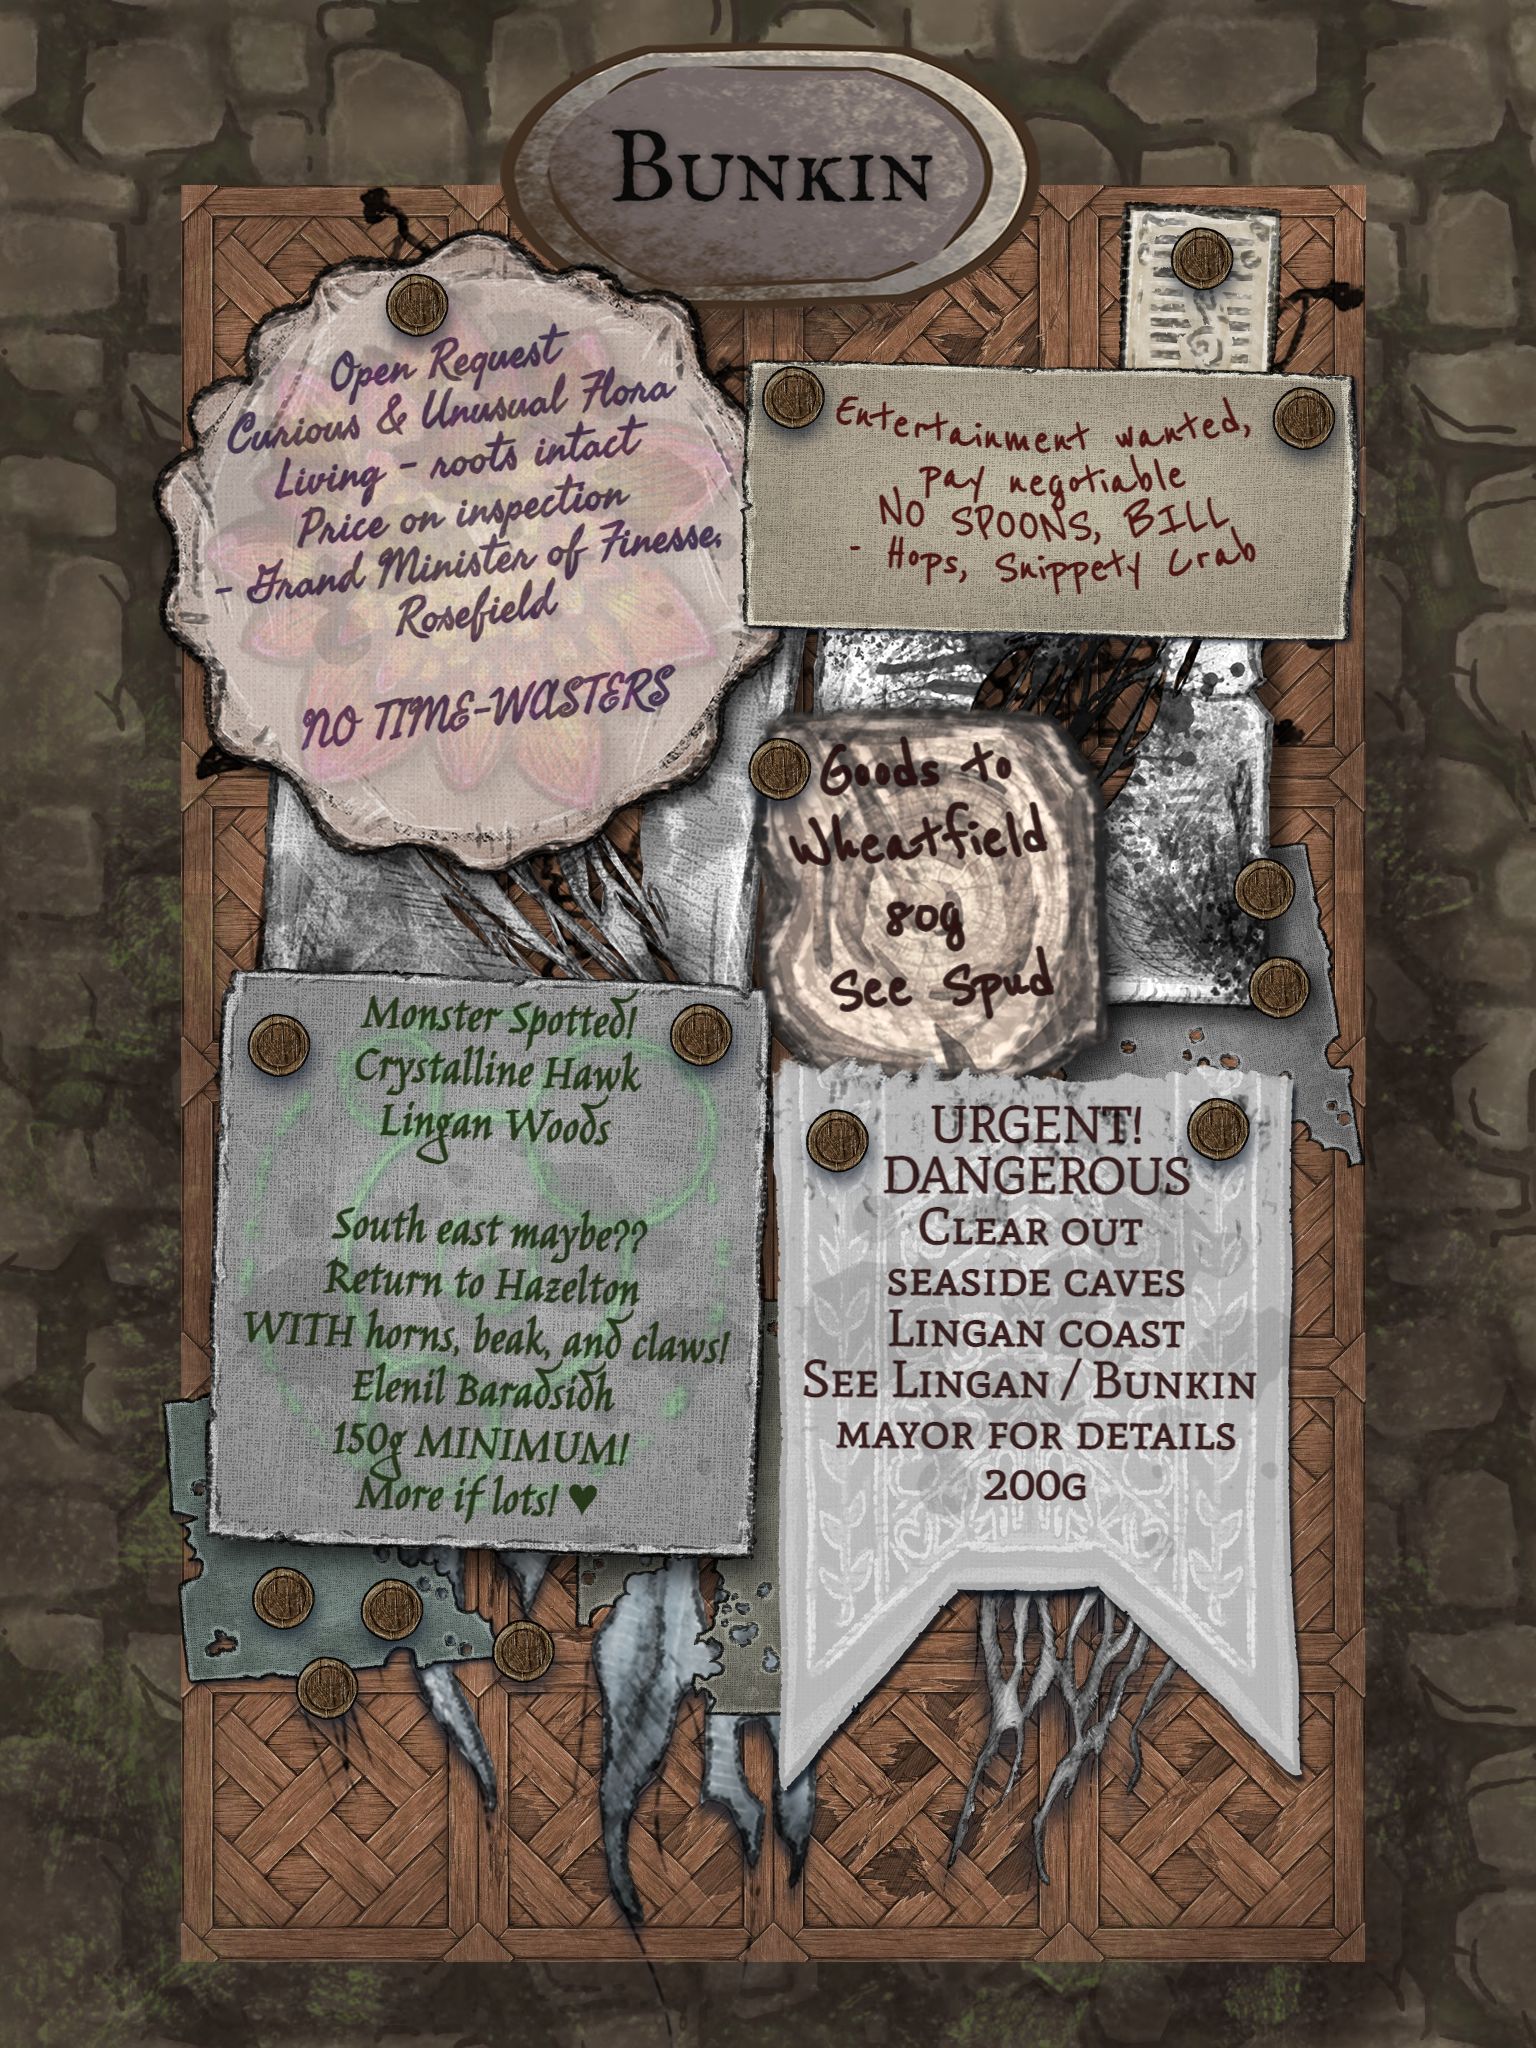 BUNKIN
Open Request
Curious & Unusual Flora
Living - roots intact
Price on inspection
- Grand Minister of Finesse,
Rosefield
NO TIME-WASTERS
Entertainment wanted,
pay negotiable
NO SPOONS, BILL
- Hops, Snippety Crab
Goods to
Wheatfield
80g
See Spud
Monster Spotted!
Crystalline Hawk
Lingan Woods
South east maybe??
Return to Hazelton
WITH horns, beak, and claws!
Elenil Baradsidh
150g MINIMUM!
More if lots! ♥
URGENT!
DANGEROUS
CLEAR OUT
SEASIDE CAVES
LINGAN COAST
SEE LINGAN / BUNKIN
MAYOR FOR DETAILS
200G